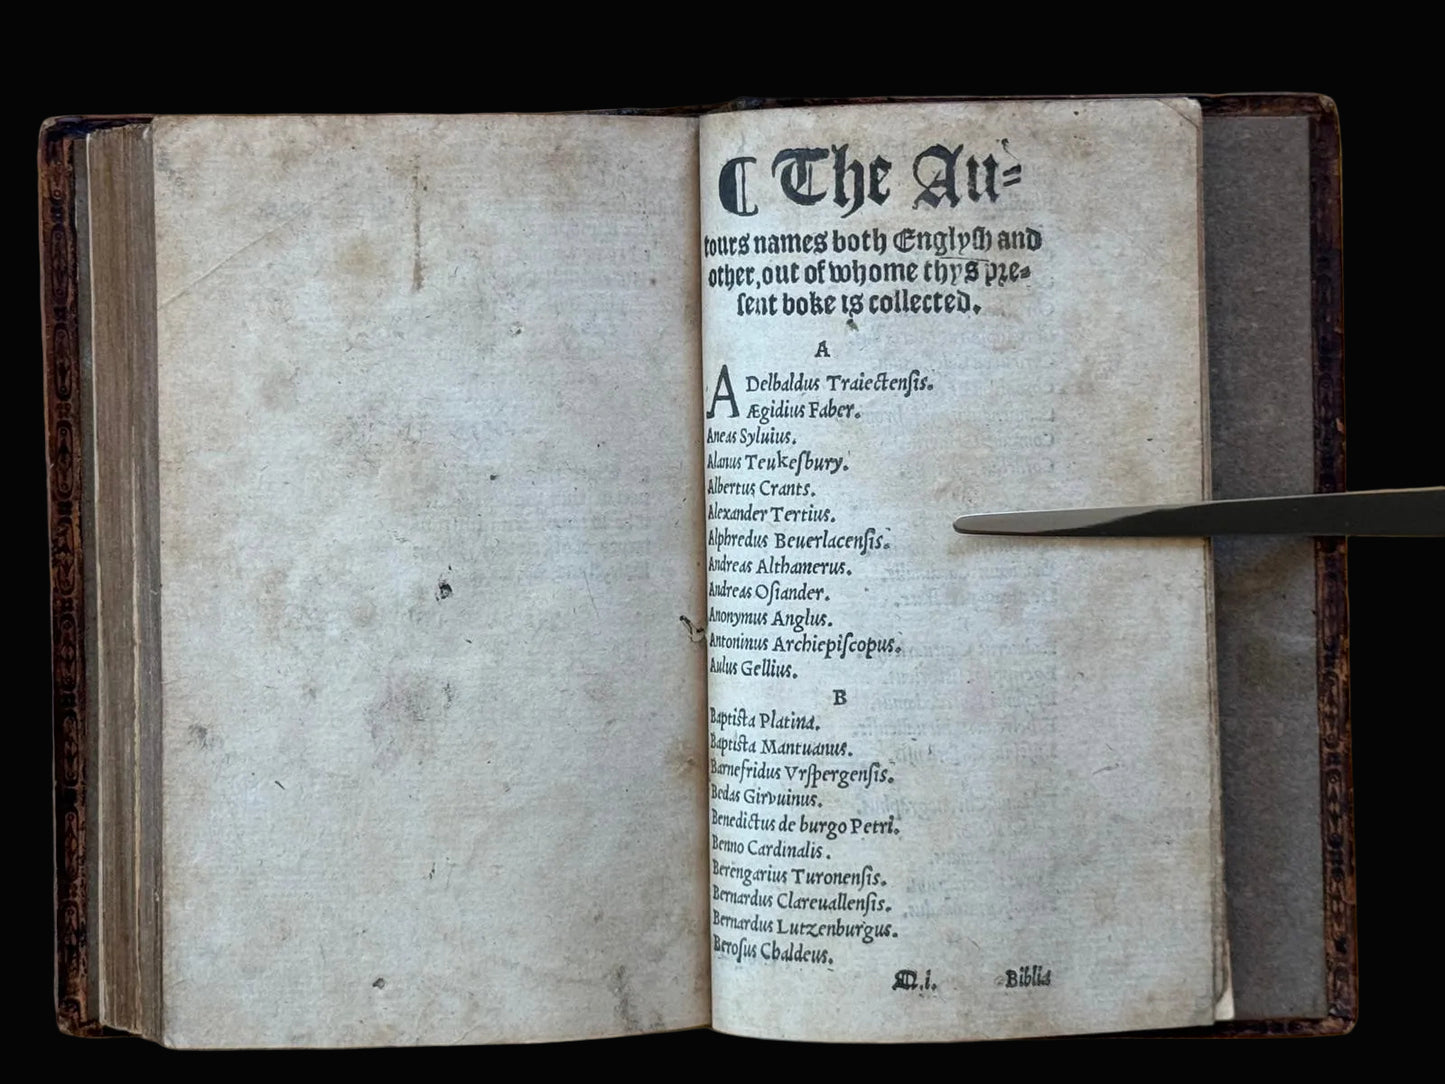 ¶ The Au⸗
tours names both Englysh and
other, out of whome thys pre⸗
sent boke is collected.
A
ADelbaldus Traiectensis.
Ægidius Faber.
Aneas Syluius.
Alanus Teukesbury.
Albertus Crants.
Alexander Tertius.
Alphredus Beuerlacensis.
Andreas Althamerus.
Andreas Osiander.
Anonymus Anglus.
Antoninus Archiepiscopus.
Aulus Gellius.
B
Baptista Platina.
Baptista Mantuanus.
Barnefridus Vrspergensis.
Bedas Girvuinus.
Benedictus de burgo Petri.
Benno Cardinalis.
Berengarius Turonensis.
Bernardus Clareuallensis.
Bernardus Lutzenburgus.
Berosus Chaldeus.
.i. Biblia